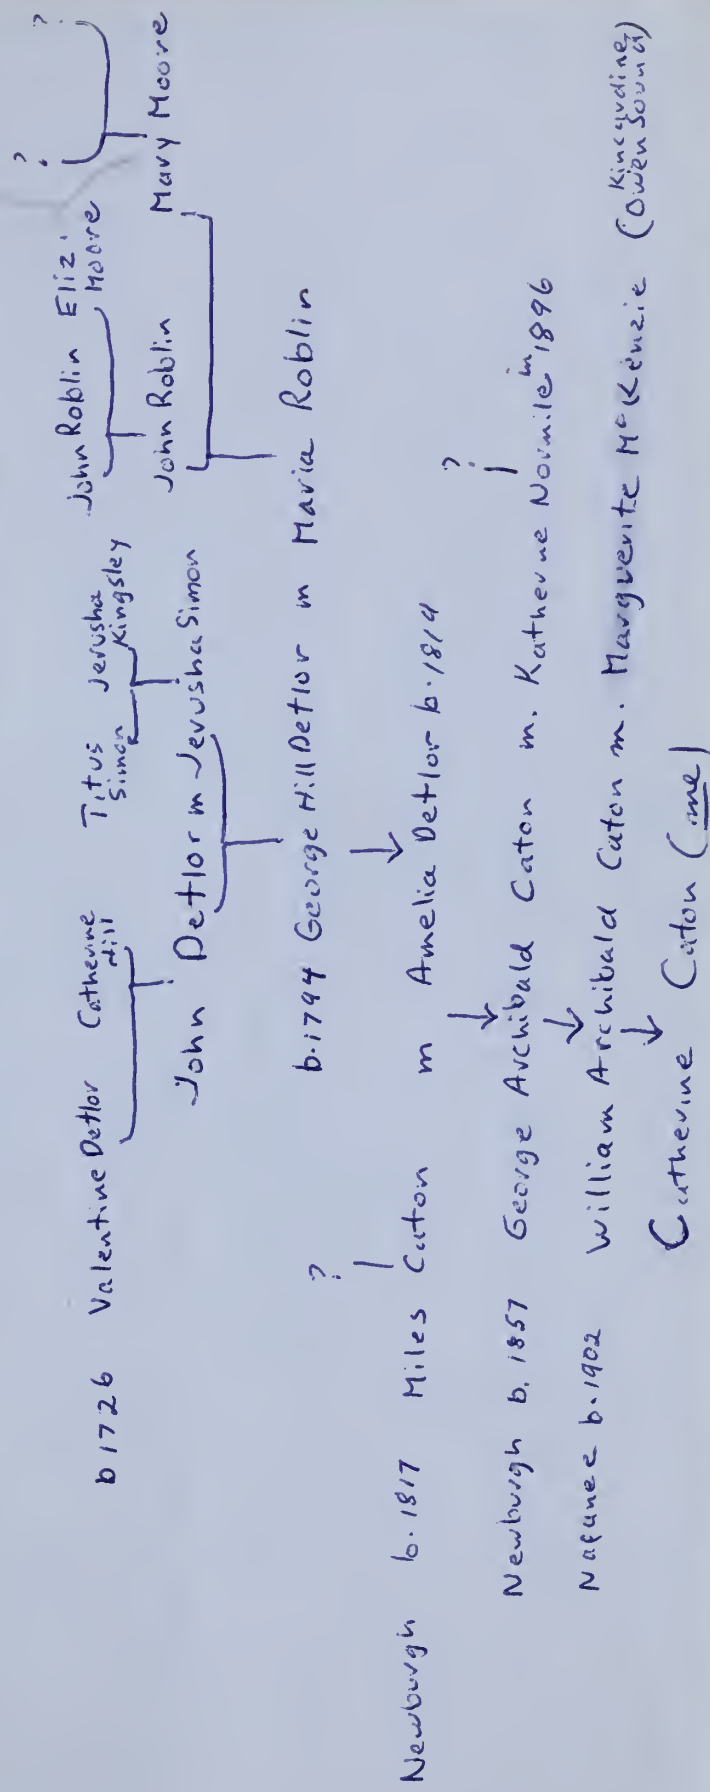 ? ?
b 1726 Valentine Detlor Catherine Hill Titus Simon Jerusha Kingsley John Roblin Eliz. Moore
John Detlor m Jerusha Simon John Roblin Mary Moore
b. 1794 George Hill Detlor m Maria Roblin
?
Newburgh b. 1817 Miles Caton m Amelia Detlor b. 1819
?
Newburgh b. 1857 George Archibald Caton m. Katherine Normile in 1896
Napanee b. 1902 William Archibald Caton m. Marguerite McKenzie (Kincardine, Owen Sound)
Catherine Caton (me)